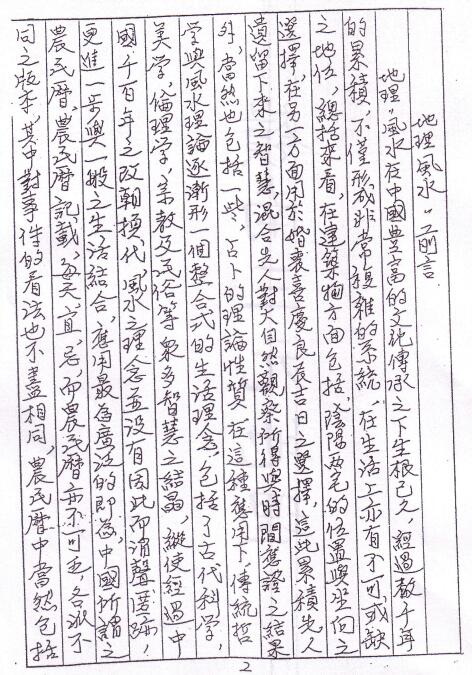 地理風水：前言
地理，風水在中國豐富的文化傳承之下生根已久，經過數千年
的累積，不僅形成非常複雜的系統，在生活上亦有不可或缺
之地位，總括來看，在建築物方面包括，陰陽兩宅的位置與坐向之
選擇，在另一方面用於婚喪喜慶良辰吉日之選擇，這些累積先人
遺留下來之智慧混合先人對大自然觀察所得與時間應證之結果
外，當然也包括一些，占卜的理論性質在這種應用下，傳統哲
學與風水理論逐漸形一個整合式的生活理念，包括了古代科學，
美学，倫理学，宗教及民俗等眾多智慧之結晶，縱使經過中
國千百年之改朝換代，風水之理念並沒有因此而消聲匿跡，
更進一步與一般之生活結合，應用最為廣泛的即為，中國所謂之
農民曆，農民曆記載，每天，宜，忌，而農民曆亦不可空，各派不
同之版本，其中對事件的看法也不盡相同，農民曆中當然包括
2